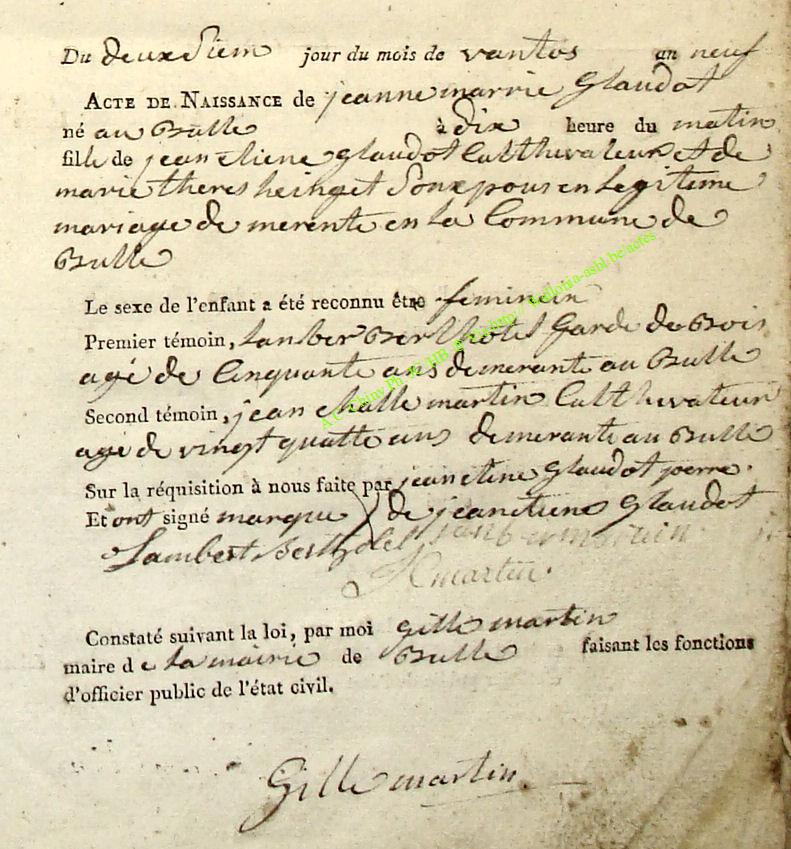 Du deuxSiem jour du mois de vantos an neuf
ACTE DE NAISSANCE de jeanne marrie Glaudot
né au Bulle à dix heure du matin
fille de jean etiene glaudot Cultthevateur et de
marie theres heinget Sonxpous en Legiteme
mariage de merente en La Commune de
Bulle
Le sexe de l'enfant a été reconnu être feminein
Premier témoin, Lanber Berthotel Garde de Bois
agé de Cinquante ans demerante au Bulle
Second témoin, jean challe martin Cultthevateur
agé de vingt quatte ans demerante au Bulle
Sur la réquisition à nous faite par jean etine Glaudot perre.
Et ont signé marque de jean etiene Glaudot
Lambert Bertholet
martin.
Constaté suivant la loi, par moi Gille martin
maire de La mairie de Bulle faisant les fonctions
d'officier public de l'état civil.
Gille martin